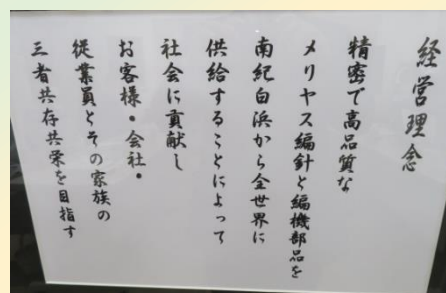 経営理念
精密で高品質な
メリヤス編針と編機部品を
南紀白浜から全世界に
供給することによって
社会に貢献し
お客様・会社・
従業員とその家族の
三者共存共栄を目指す